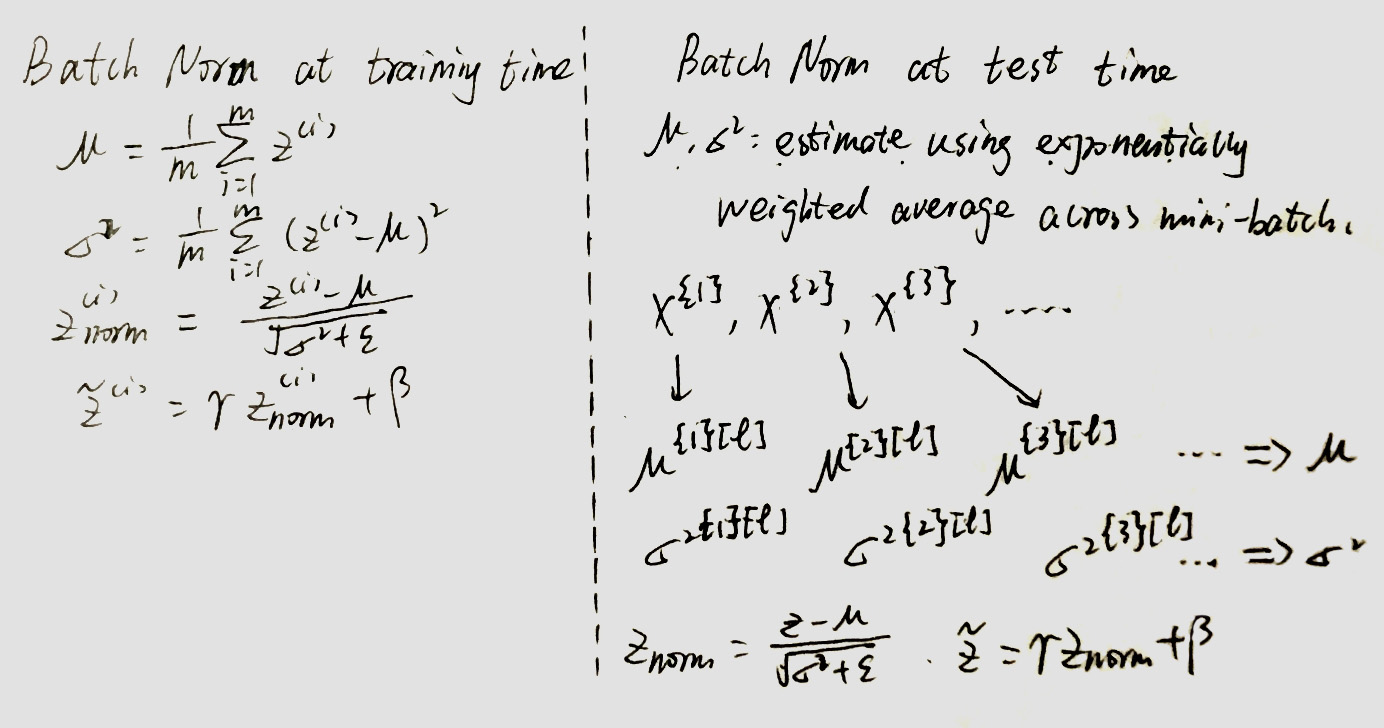 Batch Norm at training time
μ = 1/m Σ_{i=1}^{m} z^{(i)}
σ² = 1/m Σ_{i=1}^{m} (z^{(i)} - μ)²
z_{norm}^{(i)} = (z^{(i)} - μ) / √(σ² + ε)
z̃^{(i)} = γ z_{norm}^{(i)} + β
Batch Norm at test time
μ, σ²: estimate using exponentially
weighted average across mini-batch.
X^{{1}}, X^{{2}}, X^{{3}}, ....
↓ ↘ ↘
μ^{{1}[l]} μ^{{2}[l]} μ^{{3}[l]} ... => μ
σ^{2{1}[l]} σ^{2{2}[l]} σ^{2{3}[l]} ... => σ²
z_{norm} = (z - μ) / √(σ² + ε) . z̃ = γ z_{norm} + β